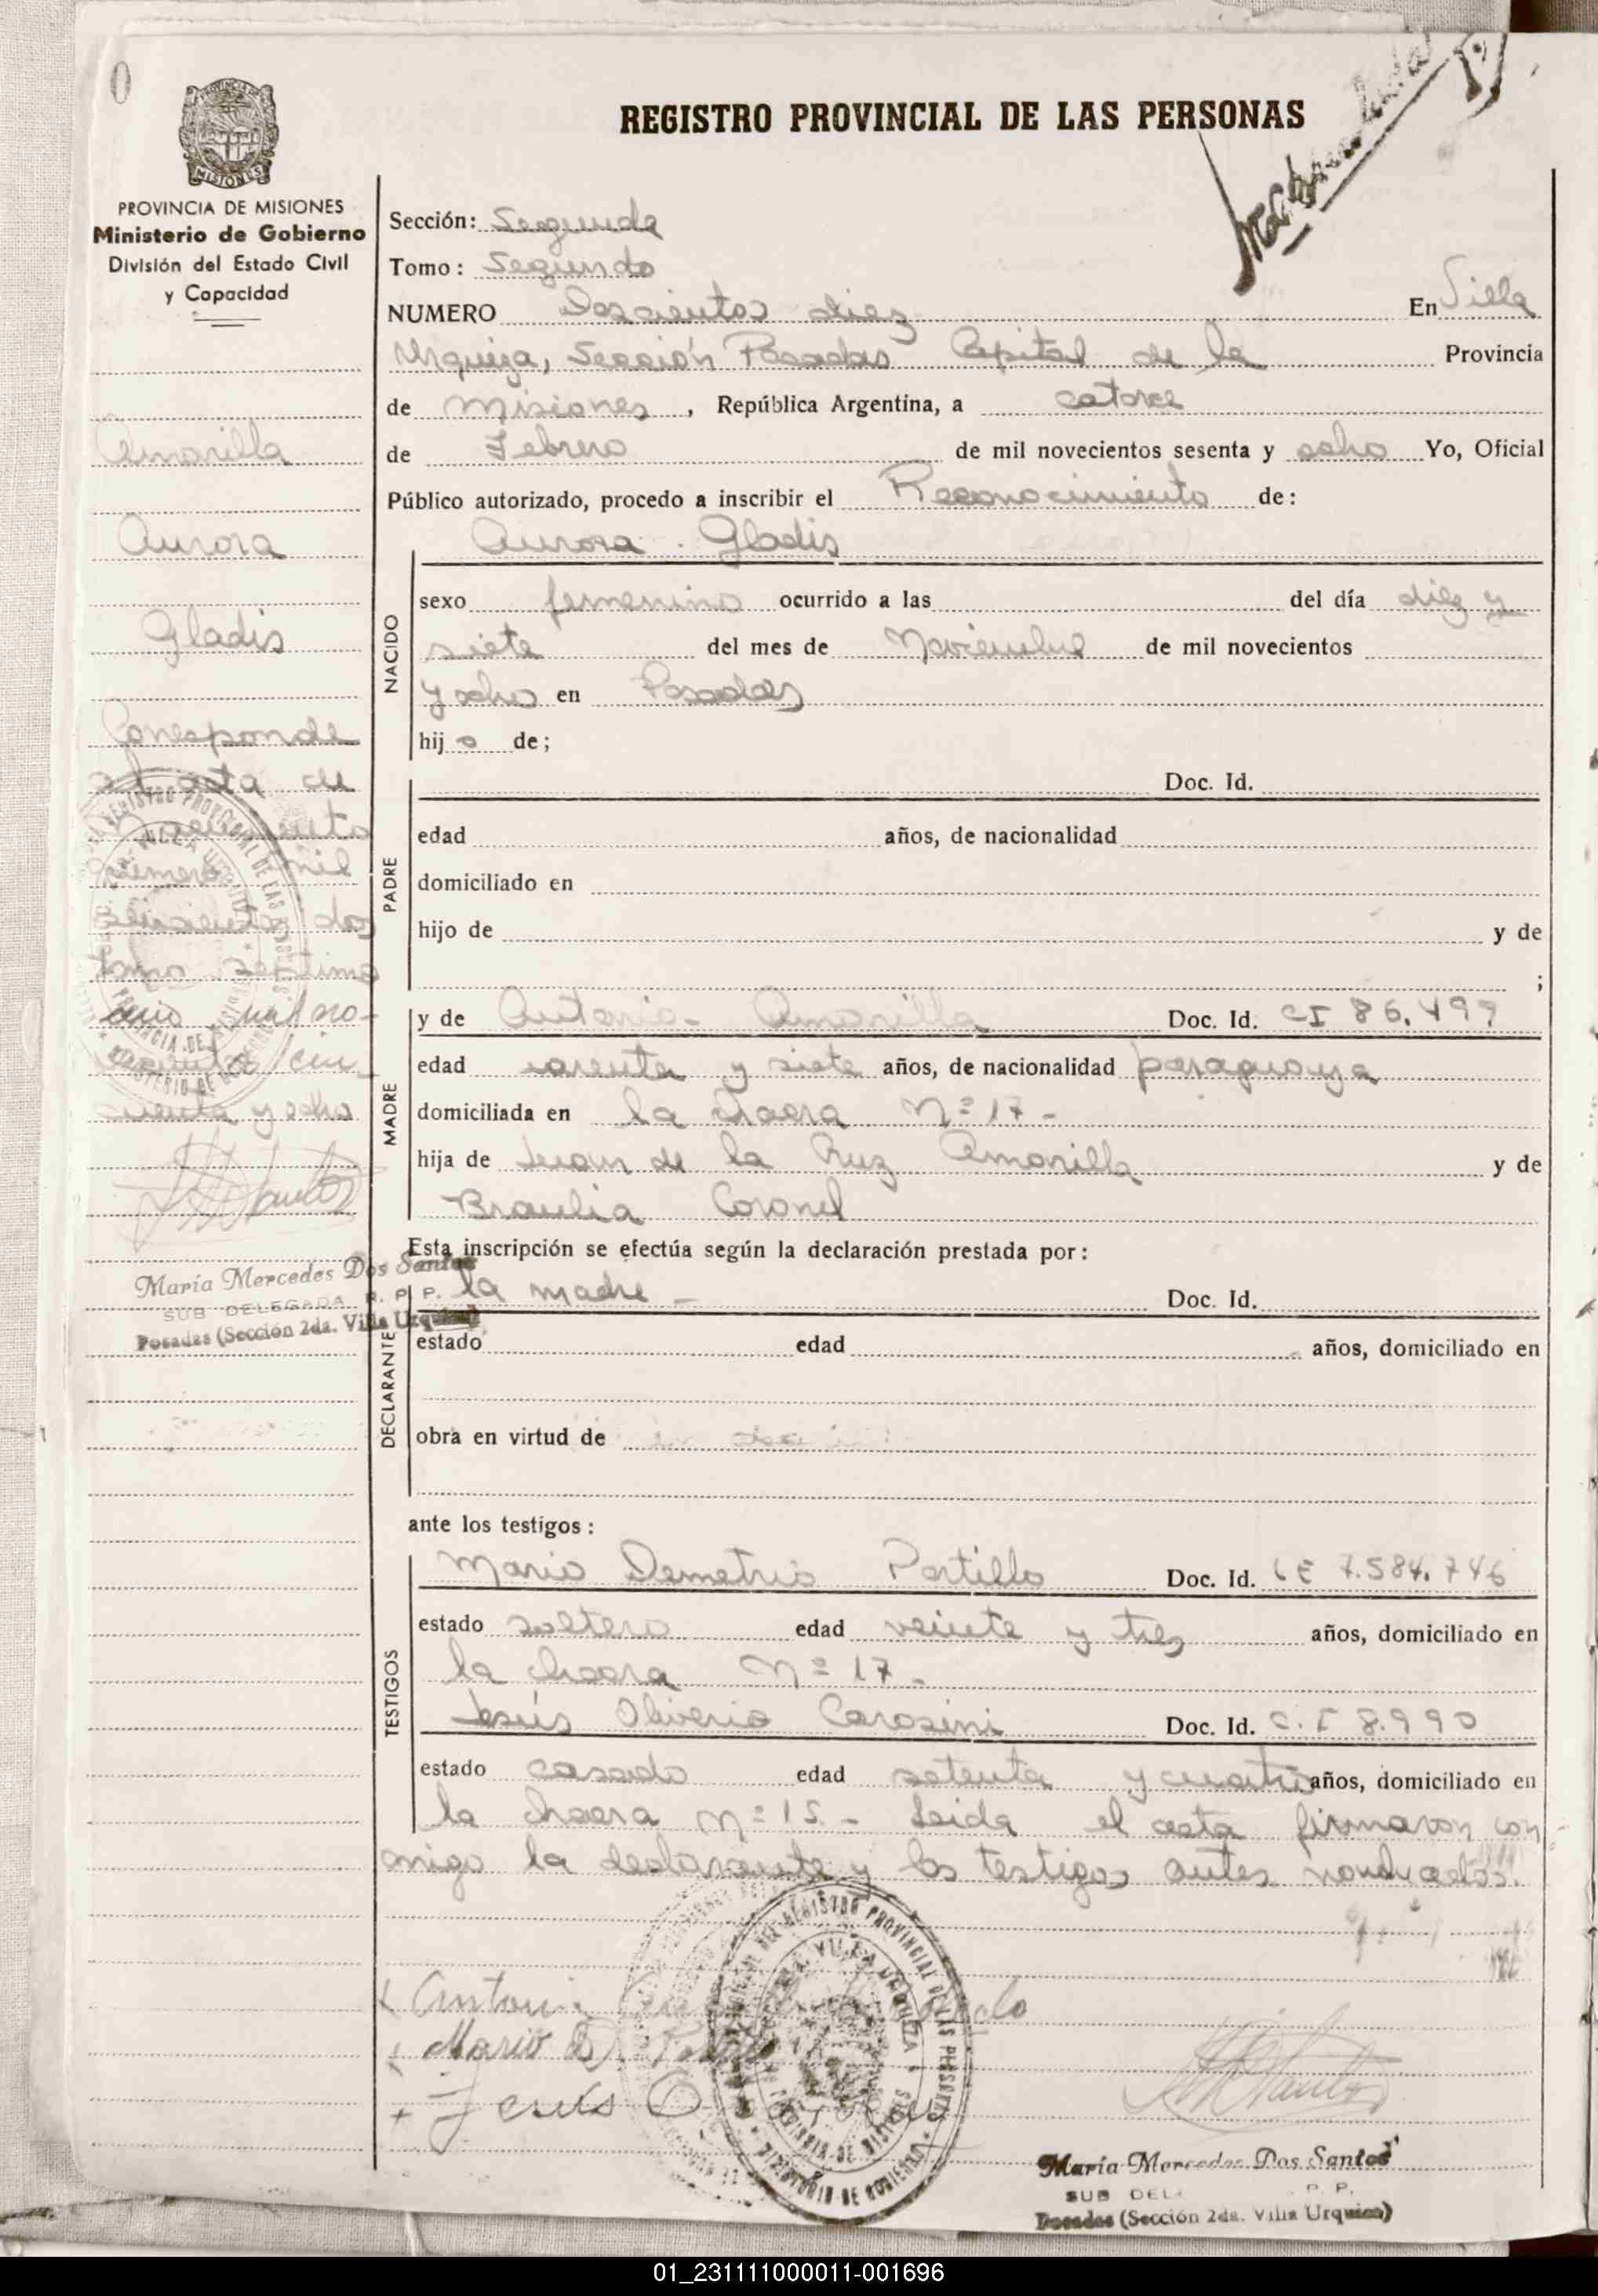 REGISTRO PROVINCIAL DE LAS PERSONAS
MISIONES
PROVINCIA DE MISIONES
Ministerio de Gobierno
División del Estado Civil
y Capacidad
Amarilla
Aurora
Gladis
Corresponde
al acta de
nacimiento
número mil
seiscientos dos
tomo septimo
año mil no-
vecientos cin
cuenta y ocho
María Mercedes Dos Santos
SUB DELEGADA R. P. P.
Posadas (Sección 2da. Villa Urquiza)
Sección: Segunda
Tomo: Segundo
NUMERO Doscientos diez En Villa
Urquiza, Sección Posadas Capital de la Provincia
de Misiones, República Argentina, a catorce
de Febrero de mil novecientos sesenta y ocho Yo, Oficial
Público autorizado, procedo a inscribir el Reconocimiento de:
Aurora Gladis
NACIDO
sexo femenino ocurrido a las del día diez y
siete del mes de Noviembre de mil novecientos
y ocho en Posadas
hijo de;
PADRE
Doc. Id.
edad años, de nacionalidad
domiciliado en
hijo de y de
;
MADRE
y de Antonia Amarilla Doc. Id. CI 86.499
edad carenta y siete años, de nacionalidad paraguaya
domiciliada en la chacra Nº 17 -
hija de Juan de la Cruz Amarilla y de
Braulia Coronel
Esta inscripción se efectúa según la declaración prestada por:
DECLARANTE
la madre - Doc. Id.
estado edad años, domiciliado en
obra en virtud de
ante los testigos:
TESTIGOS
Mario Demetrio Portillo Doc. Id. LE 7.584.746
estado soltero edad veinte y tres años, domiciliado en
la chacra Nº 17 -
Jesús Oliverio Carosini Doc. Id. C.I 8.990
estado casado edad setenta y cuatro años, domiciliado en
la chacra Nº 15 - Leida el acta firmaron con
migo la declarante y los testigos antes nombrados.
Mario D.
Jesús O
María Mercedes Dos Santos
SUB DEL P. P.
Posadas (Sección 2da. Villa Urquiza)
01_231111000011-001696